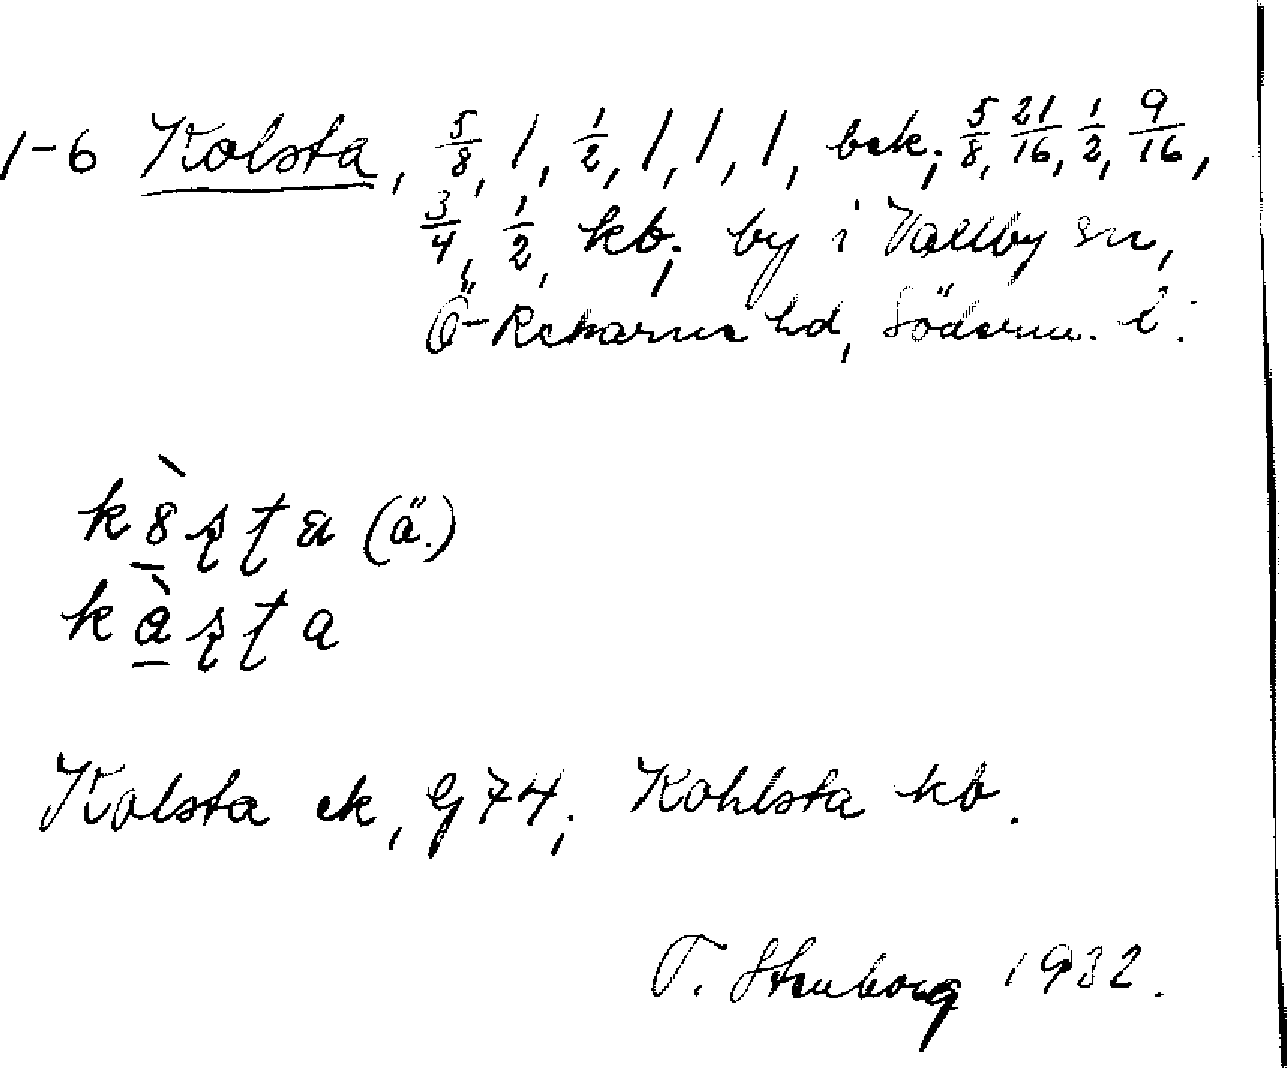 1-6 Kolsta, 5/8, 1, 1/2, 1, 1, 1, bek; 5/8, 21/16, 1/2, 9/16,
3/4, 1/2, kb; by i Vallby sn,
Ö-Rekarne hd, Söderm. l.
Kolsta ek, G 74; Kohlsta kb.
T. Stenborg 1932.